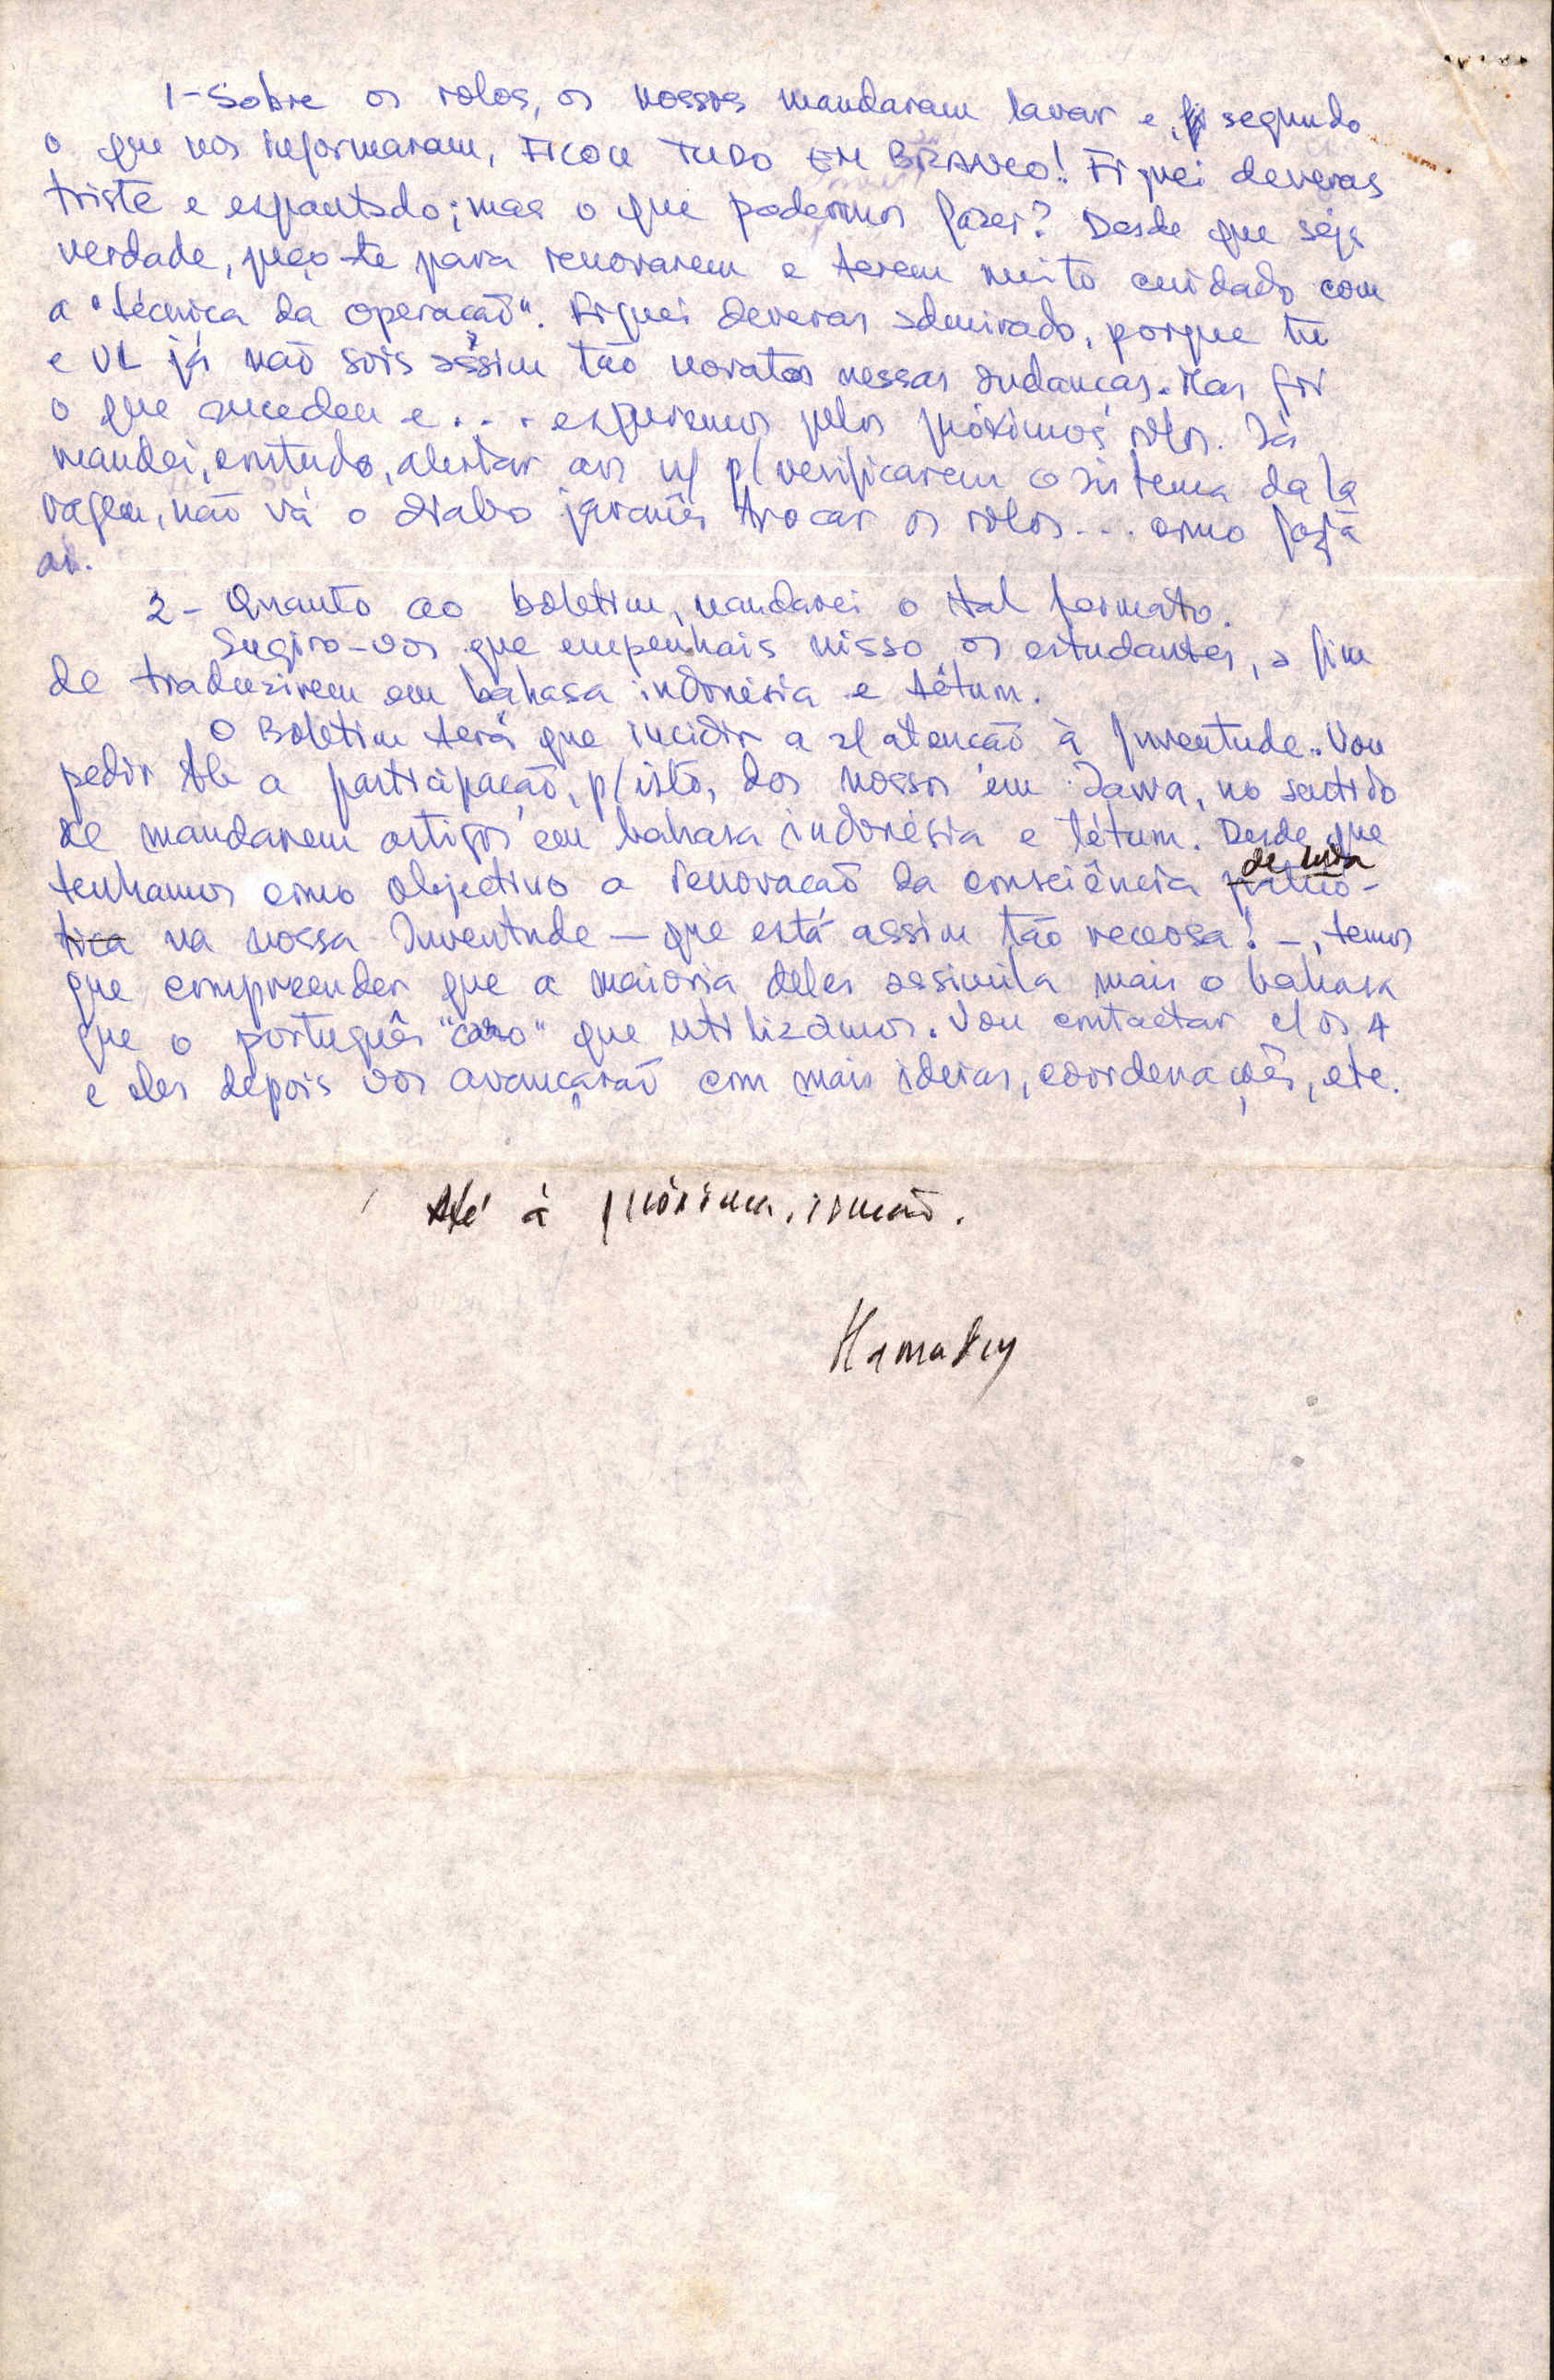 1- Sobre os rolos, os nossos mandaram lavar e, segundo
o que nos informaram, FICOU TUDO EM BRANCO! Fiquei deveras
triste e espantado; mas o que podermos fazer? Desde que seja
verdade, peço-te para renovarem e terem muito cuidado com
a "técnica da operação". Fiquei deveras admirado, porque tu
e VL já não sois assim tão novatos nessas andanças. Mas foi
o que sucedeu e... esperemos pelos próximos rolos. Já
mandei, contudo, alertar aos n/ p/ verificarem o sistema da la
vagem, não vá o diabo javanês trocar os rolos... como fará
aí.
2- Quanto ao boletim, mandarei o tal formato.
Sugiro-vos que empenhais nisso os estudantes, a fim
de traduzirem em bahasa indonésia e tétum.
O Boletim terá que incidir a s/ atenção à Juventude. Vou
pedir até a participação, p/ isto, dos nossos em Jawa, no sentido
de mandarem artigos em bahasa indonésia e tétum. Desde que
de luta
tenhamos como objectivo a renovação da consciência patrió-
tica na nossa Juventude — que está assim tão receosa! —, temos
que compreender que a maioria deles assimila mais o bahasa
que o português "caro" que utilizamos. Vou contactar c/ os A
e eles depois vos avançarão com mais ideias, coordenações, etc.
Até à próxima, irmão.